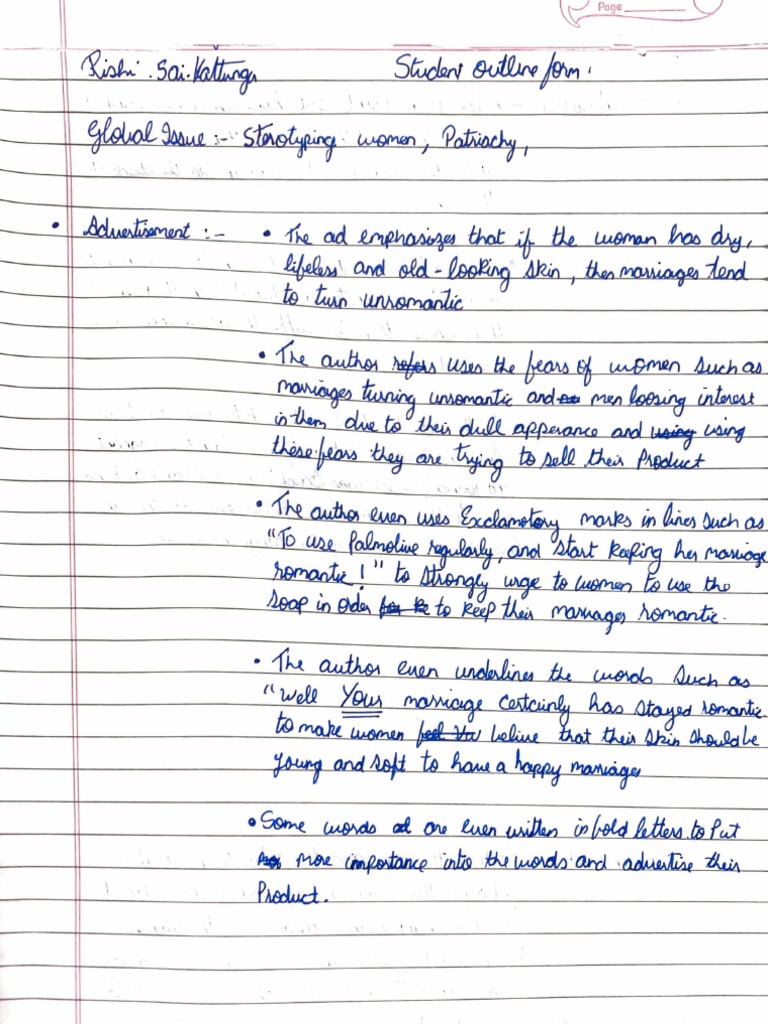 Page
Rishi Sai Kattunga Student outline form.
Global Issue :- Sterotyping women, Patriachy,
• Advertisement :- • The ad emphasizes that if the woman has dry,
lifeless and old-looking skin, then marriages tend
to turn unromantic
• The author refers uses the fears of women such as
marriages turning unromantic and men loosing interest
in them due to their dull apperance and using using
these fears they are trying to sell their Product
• The author even uses Exclamatory marks in lines such as
"To use Palmolive regularly, and start keeping her marriage
romantic!" to strongly urge to women to use the
soap in order to keep their marriages romantic.
• The author even underlines the words such as
"Well Your marriage certainly has stayed romantic
to make women belive that their skin should be
young and soft to have a happy marriages
• Some words are even written in bold letters to Put
more importance into the words and advertise their
Product.